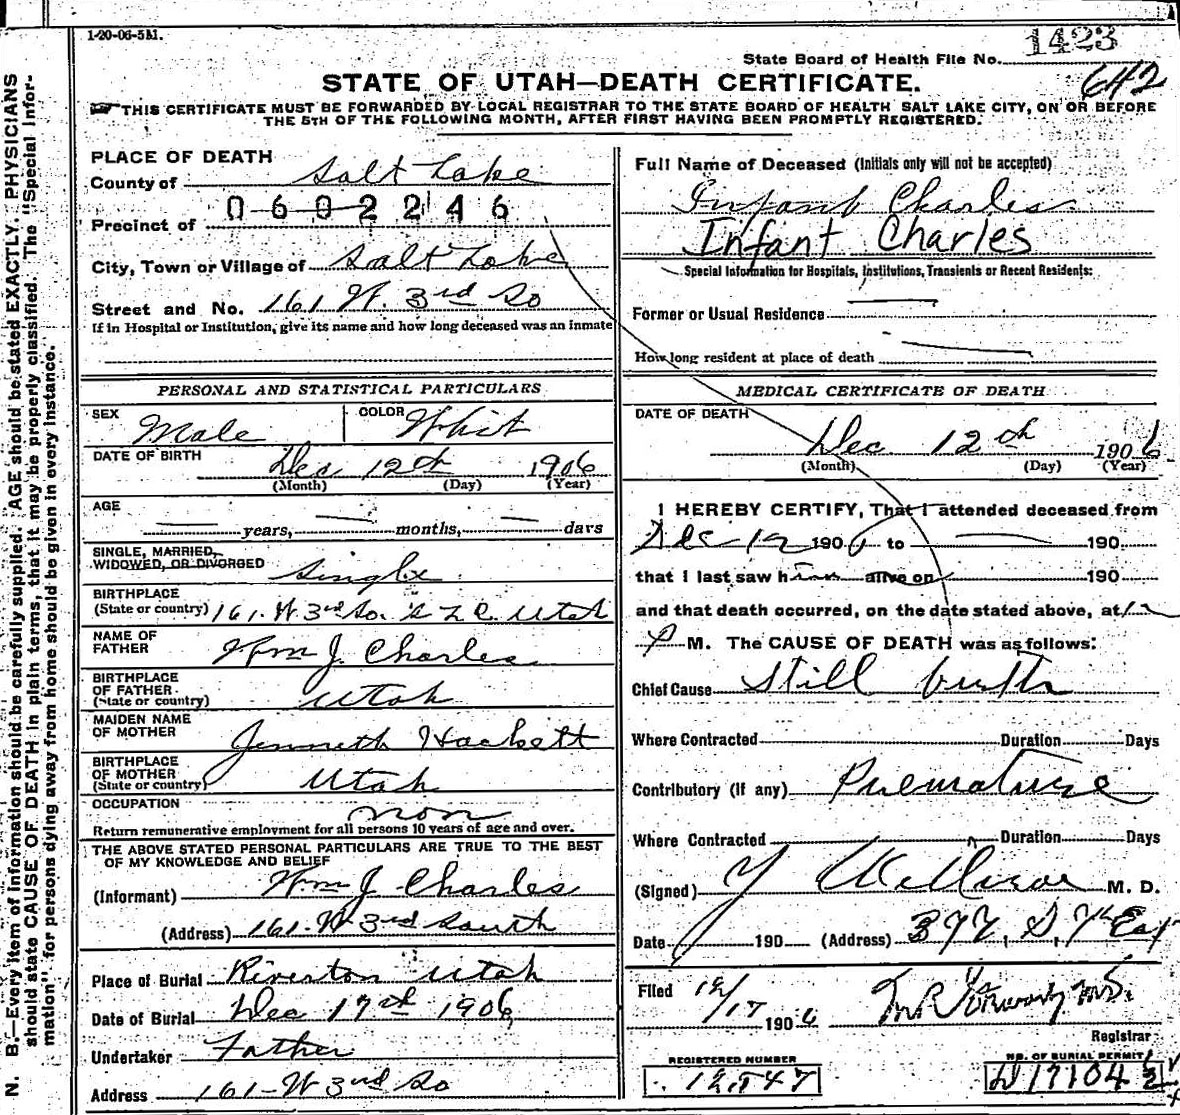 1-20-06-5M.
1423
State Board of Health File No.
642
STATE OF UTAH—DEATH CERTIFICATE.
THIS CERTIFICATE MUST BE FORWARDED BY LOCAL REGISTRAR TO THE STATE BOARD OF HEALTH SALT LAKE CITY, ON OR BEFORE
THE 5TH OF THE FOLLOWING MONTH, AFTER FIRST HAVING BEEN PROMPTLY REGISTERED.
N. B.—Every item of information should be carefully supplied. AGE should be stated EXACTLY. PHYSICIANS
should state CAUSE OF DEATH in plain terms, that it may be properly classified. The "Special Infor-
mation" for persons dying away from home should be given in every instance.
PLACE OF DEATH
County of Salt Lake
0602246
Precinct of
City, Town or Village of Salt Lake
Street and No. 161 W. 3rd So
If in Hospital or Institution, give its name and how long deceased was an inmate
PERSONAL AND STATISTICAL PARTICULARS
SEX Male COLOR Whit
DATE OF BIRTH Dec 12th 1906
(Month) (Day) (Year)
AGE
— years, — months, — days
SINGLE, MARRIED,
WIDOWED, OR DIVORCED Single
BIRTHPLACE
(State or country) 161. W 3rd So. S L C. Utah
NAME OF
FATHER Wm J. Charles
BIRTHPLACE
OF FATHER
(State or country) Utah
MAIDEN NAME
OF MOTHER Jenneth Hackett
BIRTHPLACE
OF MOTHER
(State or country) Utah
OCCUPATION non
Return remunerative employment for all persons 10 years of age and over.
THE ABOVE STATED PERSONAL PARTICULARS ARE TRUE TO THE BEST
OF MY KNOWLEDGE AND BELIEF
(Informant) Wm J Charles
(Address) 161-W 3rd South
Place of Burial Riverton Utah
Date of Burial Dec 17th 1906
Undertaker Father
Address 161-W 3rd So
Full Name of Deceased (Initials only will not be accepted)
Infant Charles
Infant Charles
Special Information for Hospitals, Institutions, Transients or Recent Residents:
Former or Usual Residence —
How long resident at place of death —
MEDICAL CERTIFICATE OF DEATH
DATE OF DEATH
Dec 12th 1906
(Month) (Day) (Year)
I HEREBY CERTIFY, That I attended deceased from
Dec 12 1906 to — 190
that I last saw him alive on 190
and that death occurred, on the date stated above, at 12
P M. The CAUSE OF DEATH was as follows:
Chief Cause Still birth
Where Contracted Duration Days
Contributory (if any) Premature
Where Contracted Duration Days
(Signed) M. D.
Date 190 (Address)
Filed 12/17 1906
Registrar
REGISTERED NUMBER
NO. OF BURIAL PERMIT